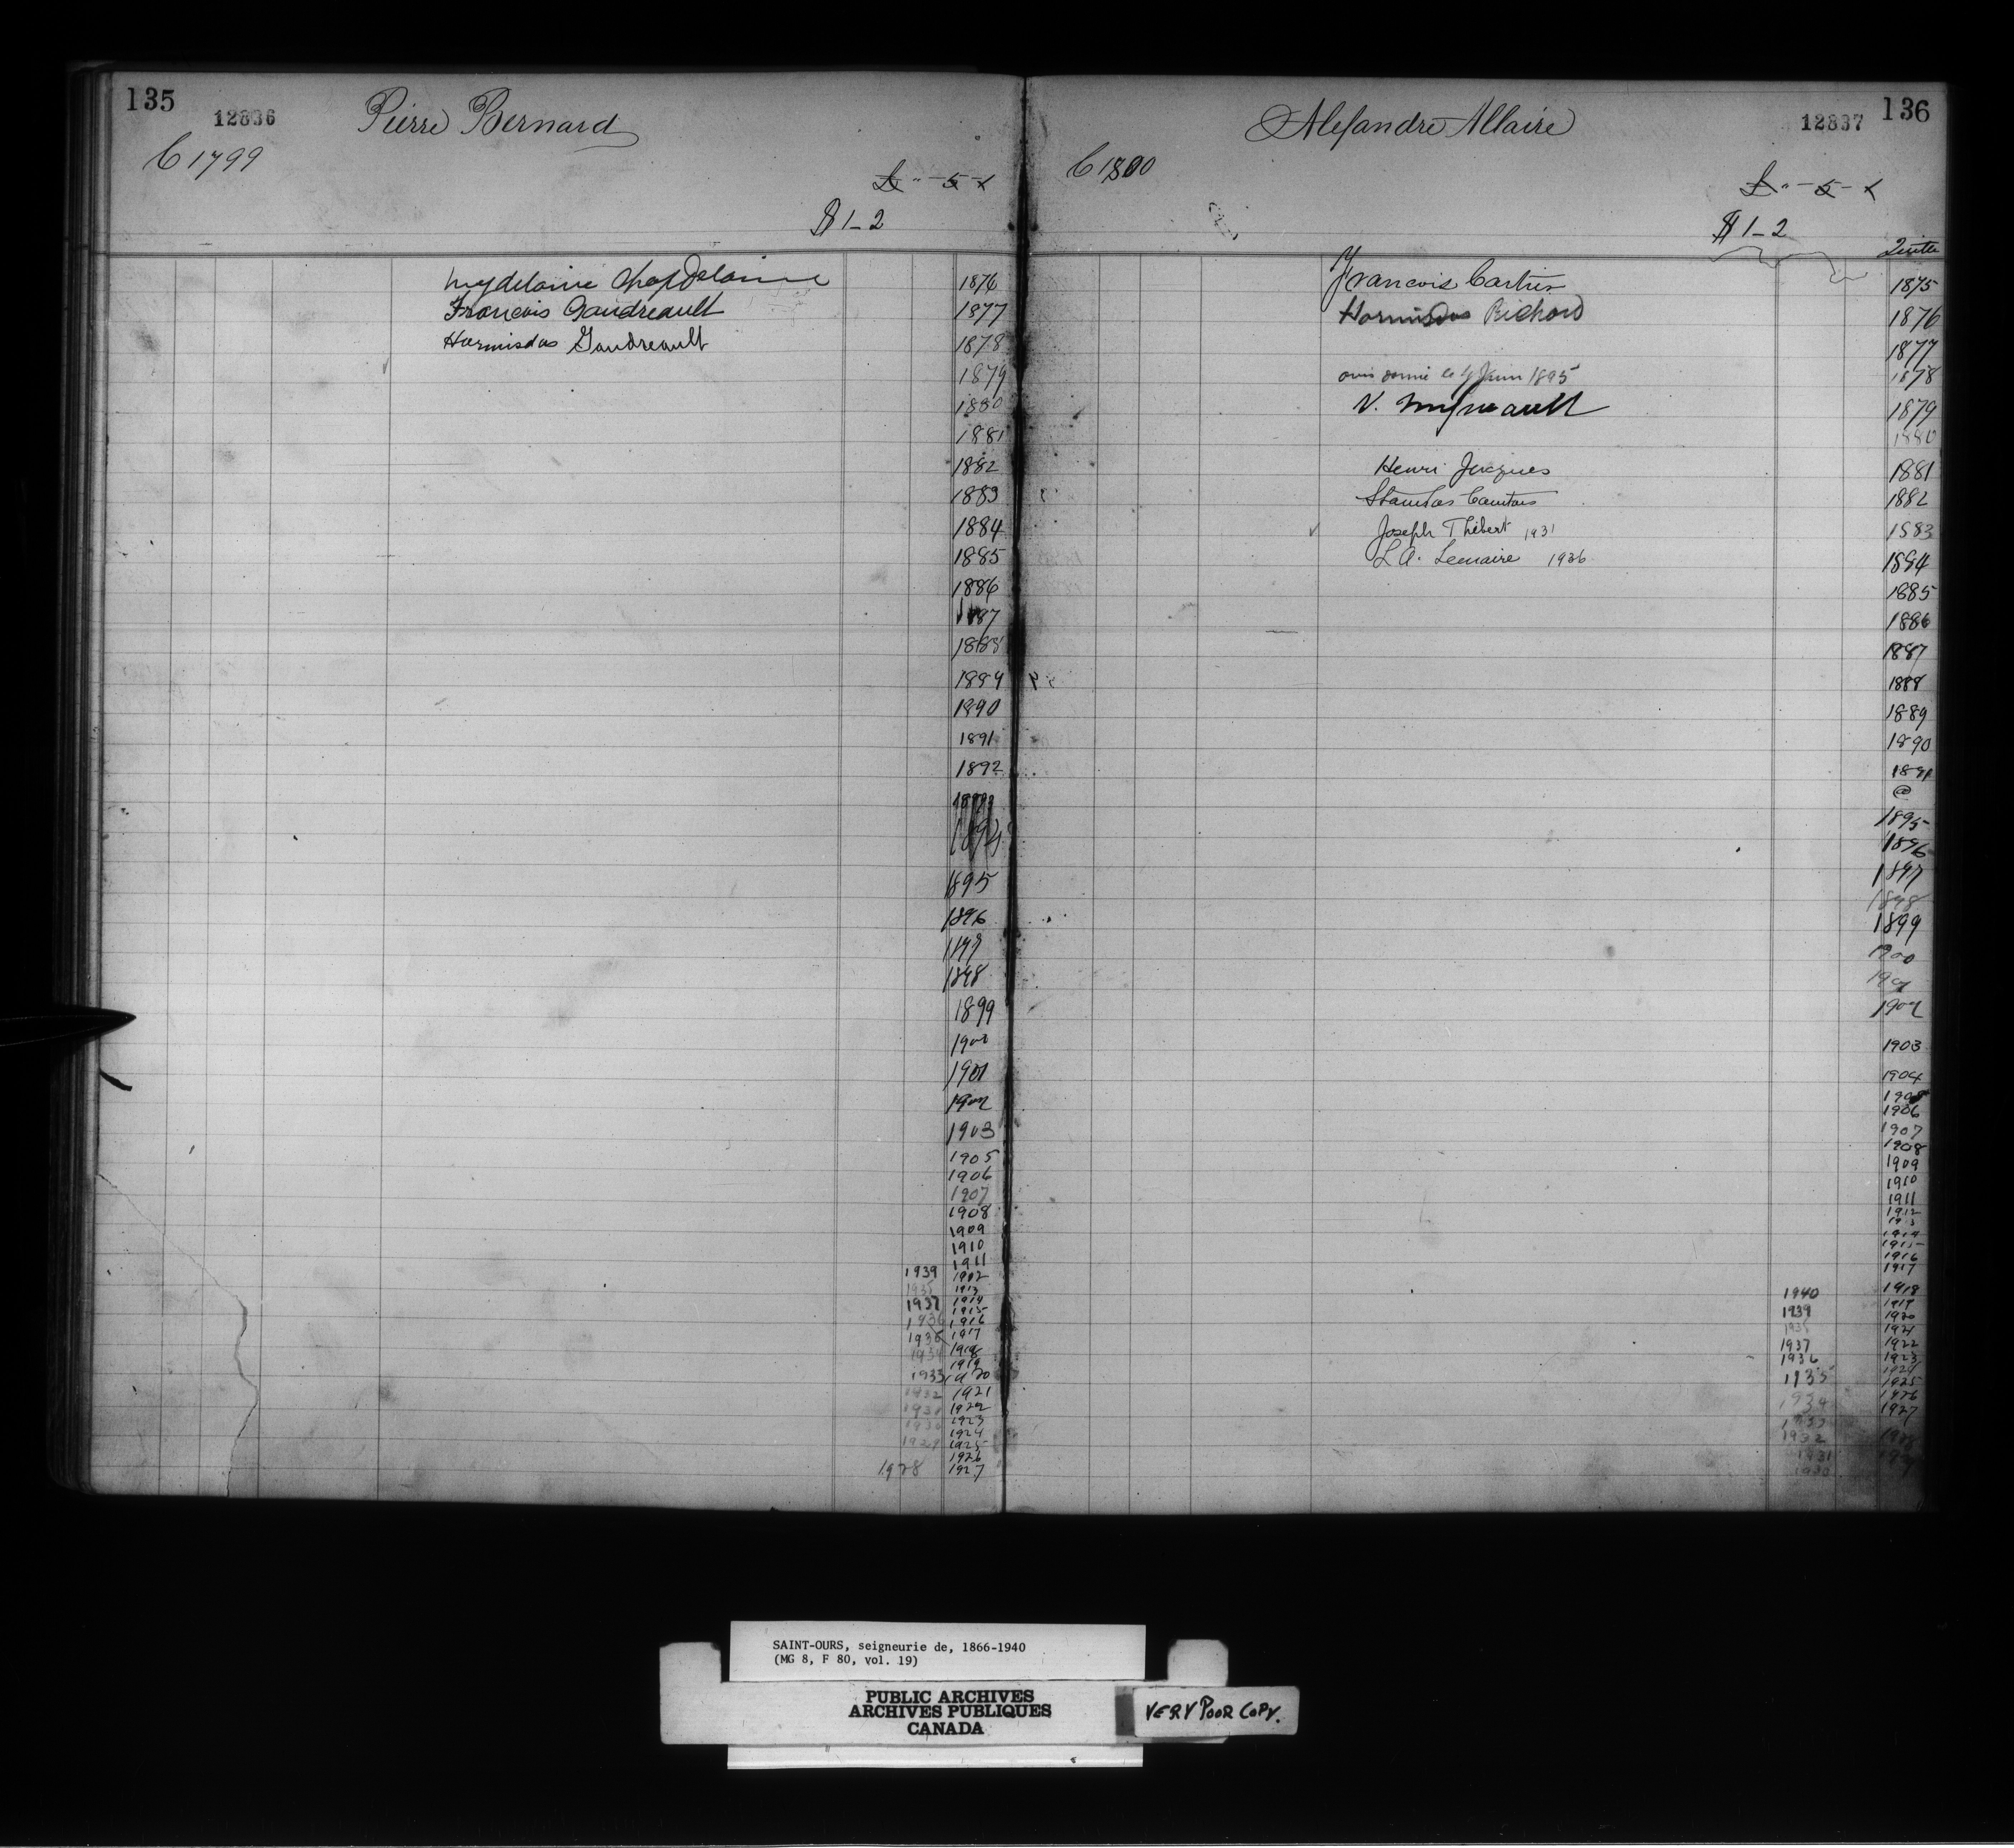 135
12836
Pierre Bernard
C 1799
£ " - 5 - x
$ 1 - 2
Chapdelaine 1876
Francois Gaudreault 1877
Hormisdas Gaudreault 1878
1879
1880
1881
1882
1883
1884
1885
1886
1887
1888
1889
1890
1891
1892
1895
1896
1898
1899
1901
1902
1903
1905
1906
1907
1908
1909
1910
1911
1939 1902
1935 1913
1937 1914
1915
1936 1916
1935 1917
1934 1918
1919
1933 1920
1932 1921
1931 1922
1930 1923
1924
1929 1925
1926
1928 1927
136
12837
Alexandre Allaire
C 1800
£ " - 5 - x
$ 1 - 2
Quitte
Francois Cartier 1875
Hormisdas Richard 1876
1877
avis donné le 4 Juin 1895 1878
1879
1880
Henri Jacques 1881
1882
Joseph Thibert 1931 1883
L A. Lemaire 1936 1884
1885
1886
1887
1888
1889
1890
1891
@
1895
1896
1897
1898
1899
1900
1901
1902
1903
1904
1905
1906
1907
1908
1909
1910
1911
1912
1913
1914
1915
1916
1917
1940 1918
1919
1939 1920
1921
1937 1922
1936 1923
1924
1935 1925
1926
1934 1927
1932
1931
1930
SAINT-OURS, seigneurie de, 1866-1940
(MG 8, F 80, vol. 19)
PUBLIC ARCHIVES
ARCHIVES PUBLIQUES
CANADA
VERY POOR COPY.